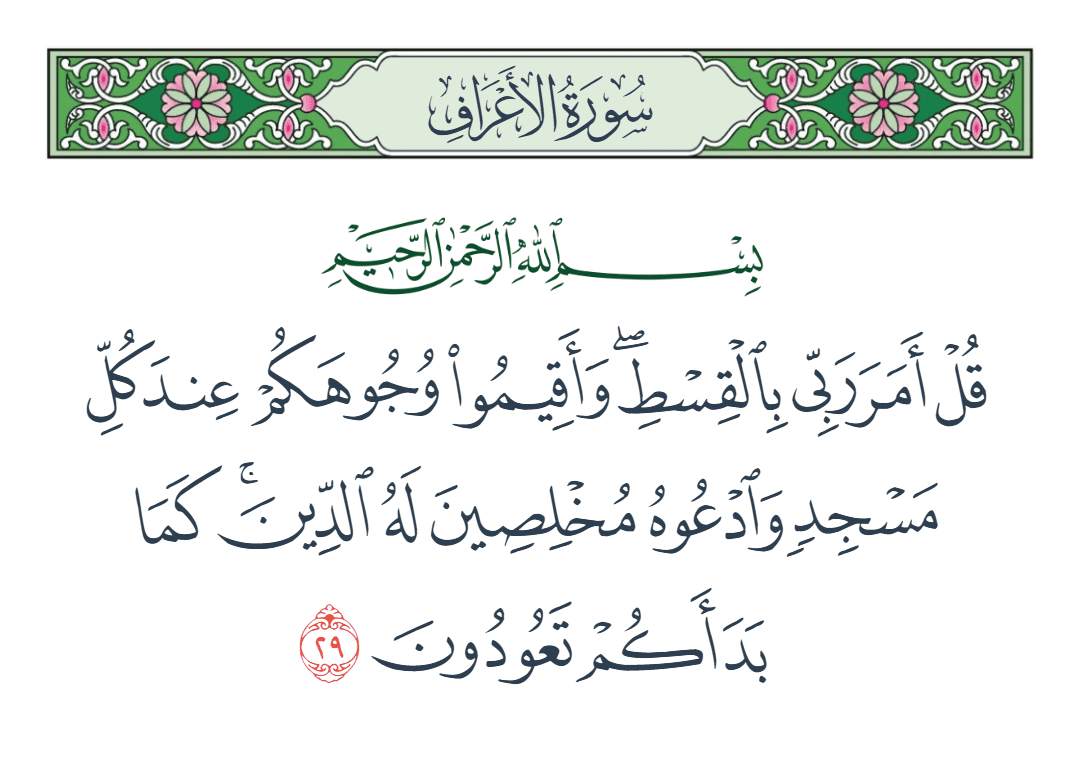 سُورَةُ الأَعْرَافِ
بِسْمِ ٱللَّهِ ٱلرَّحْمَٰنِ ٱلرَّحِيمِ
قُلْ أَمَرَ رَبِّي بِٱلْقِسْطِۖ وَأَقِيمُوا۟ وُجُوهَكُمْ عِندَ كُلِّ
مَسْجِدٍ وَٱدْعُوهُ مُخْلِصِينَ لَهُ ٱلدِّينَۚ كَمَا
بَدَأَكُمْ تَعُودُونَ ٢٩